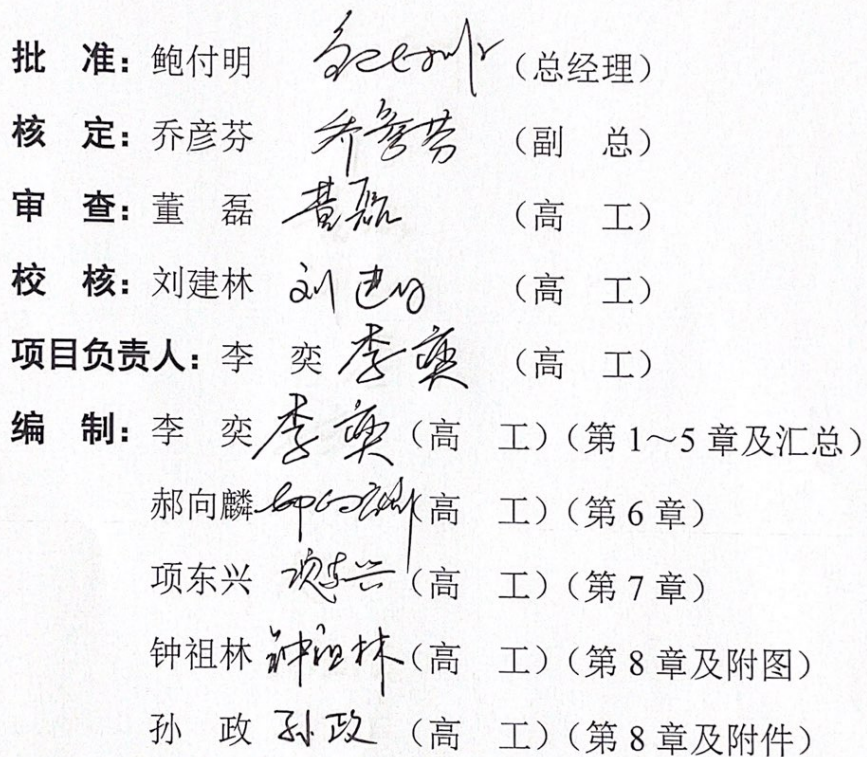 批　准：鲍付明　鲍付明（总经理）
核　定：乔彦芬　乔彦芬（副　总）
审　查：董　磊　董磊（高　工）
校　核：刘建林　刘建林（高　工）
项目负责人：李　奕　李奕（高　工）
编　制：李　奕　李奕（高　工）（第 1～5 章及汇总）
郝向麟　郝向麟（高　工）（第 6 章）
项东兴　项东兴（高　工）（第 7 章）
钟祖林　钟祖林（高　工）（第 8 章及附图）
孙　政　孙政（高　工）（第 8 章及附件）